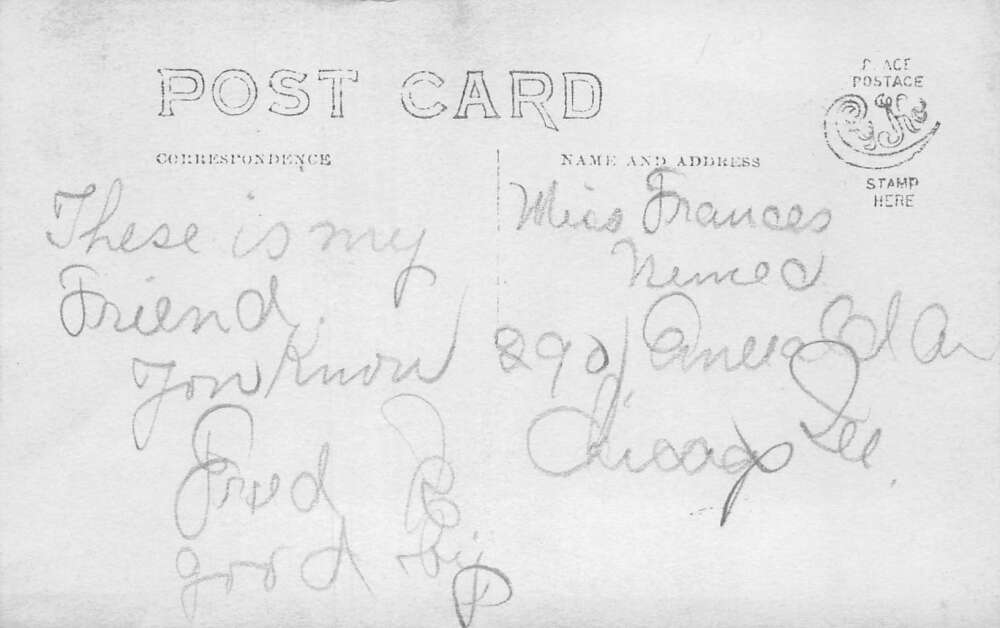 POST CARD
PLACE
POSTAGE
STAMP
HERE
CORRESPONDENCE
These is my
Friend.
You Know
Fred R
good by
NAME AND ADDRESS
Miss Frances
Nemed
Av
Chicago Ill.